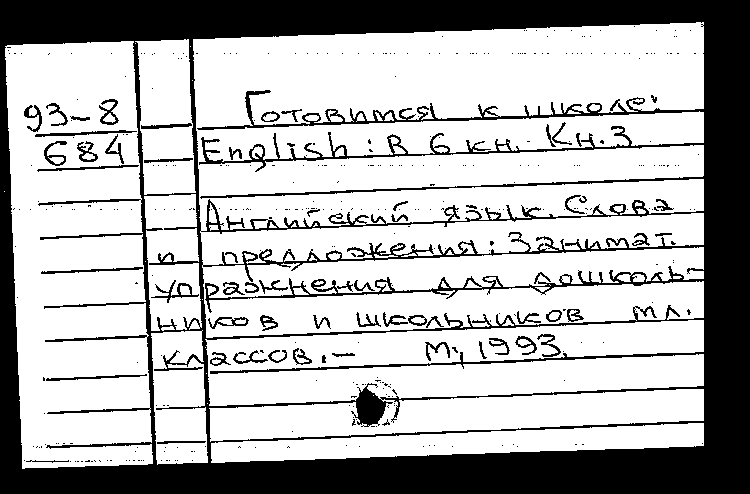 93-8
684
Готовимся к школе:
English: В 6 кн. Кн. 3
Английский язык. Слова
и предложения: Занимат.
упражнения для дошколь-
ников и школьников мл.
классов. - М., 1993.